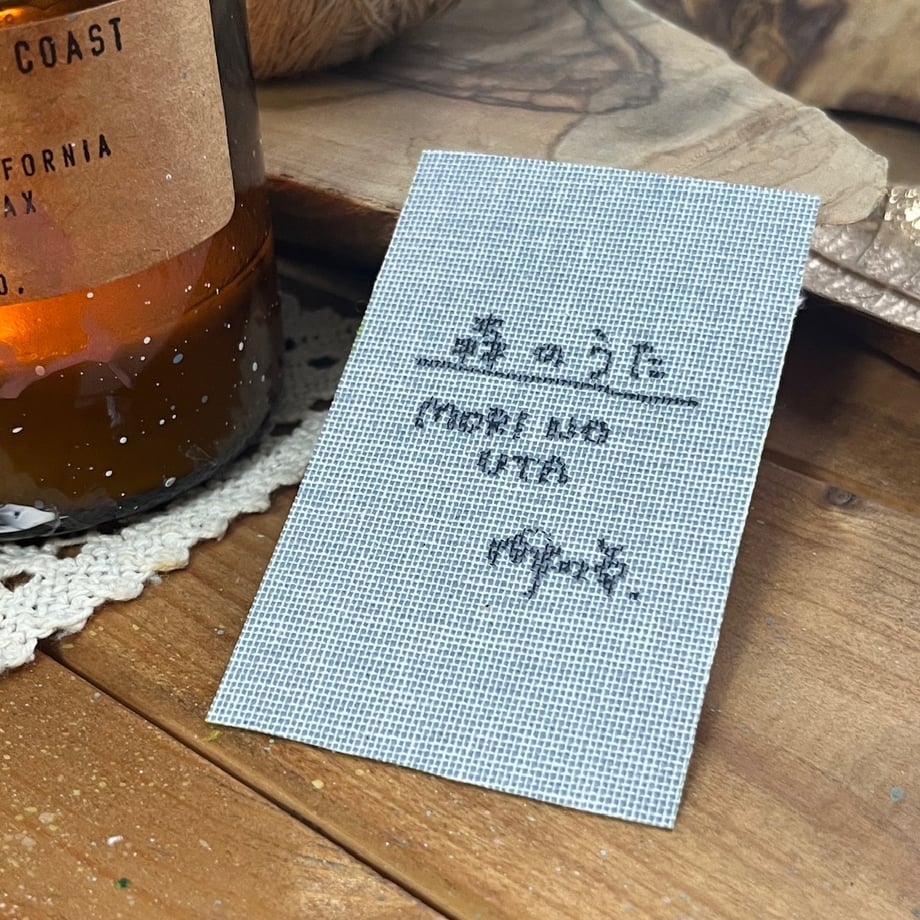 COAST
FORNIA
AX
O.
森のうた
MORI NO
UTA